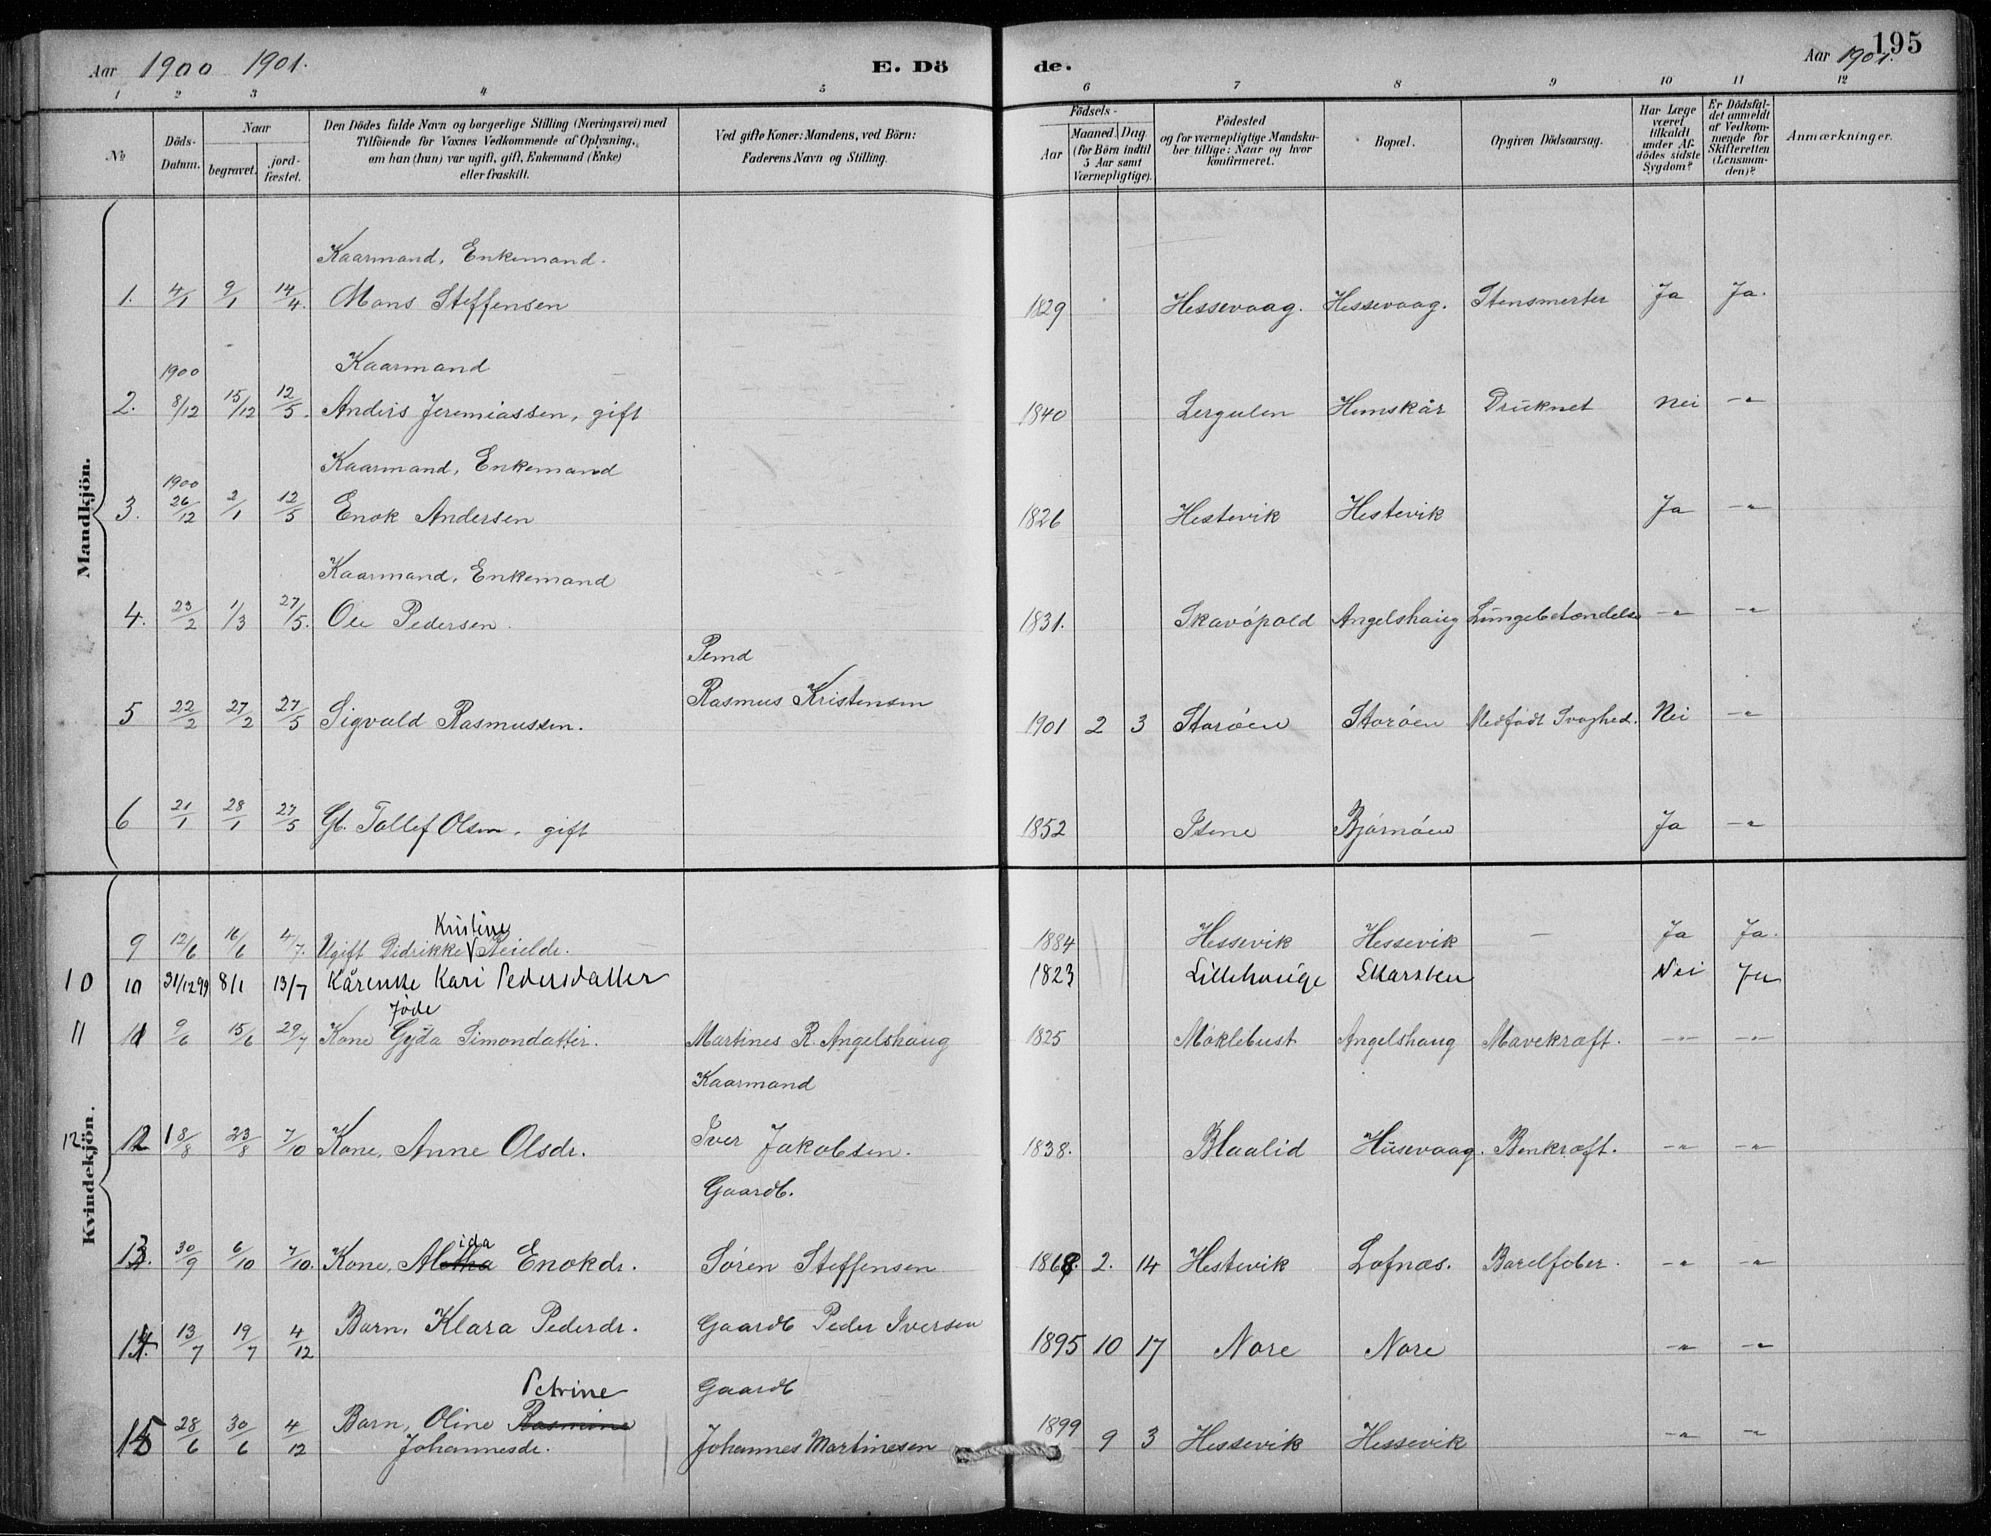 Aar 1900 1901.
E. Dö
de.
Aar 1901.
195
1 2 3 4 5 6 7 8 9 10 11 12
No
Döds-Datum.
Naar
begravet.
jord-fæstet.
Den Dödes fulde Navn og borgerlige Stilling (Næringsvei) med
Tilföiende for Voxnes Vedkommende af Oplysning,
om han (hun) var ugift, gift, Enkemand (Enke)
eller fraskilt.
Ved gifte Koner: Mandens, ved Börn:
Faderens Navn og Stilling.
Födsels-
Aar
Maaned. Dag.
(for Börn indtil
5 Aar samt
Værnepligtige).
Födested
og for værnepligtige Mandska-
ber tillige: Naar og hvor
konfirmeret.
Bopæl.
Opgiven Dödsaarsag.
Har Læge
været
tilkaldt
under Af-
dödes sidste
Sygdom?
Er Dödsfal-
det anmeldt
af Vedkom-
mende for
Skifteretten
(Lensman-
den)?
Anmærkninger.
Mandkjön.
Kaarmand, Enkemand.
1. 4/1 9/1 14/4. Mons Steffensen 1829 Hessevaag. Hessevaag. Stensmerter Ja Ja.
1900 Kaarmand
2. 8/12 15/12 12/5. Anders Jeremiassen, gift 1840 Lergulen Humskår Druknet Nei -"-
Kaarmand, Enkemand
1900
3. 26/12 2/1 12/5 Enok Andersen 1826 Hestevik Hestevik Ja -"-
Kaarmand, Enkemand
4. 23/2 1/3 27/5. Ole Pedersen. 1831. Skavöpold Angelshaug Lungebetændelse -"- -"-
Pemd
Rasmus Kristensen
5 22/2 27/2 27/5 Sigvald Rasmussen. 1901 2 3 Storöen Storöen Medfödt Svaghed. Nei -"-
6 21/1 28/1 27/5 Gb. Tollef Olsen. gift 1852 Stene Björnöen Ja -"-
Kvindekjön.
Kristine
9 12/6 16/6 4/7. Ugift Didrikke Reieldr. 1884 Hessevik Hessevik - Ja Ja.
10 10 31/12 99 8/1 13/7 Kårenke Kari Pedersdatter 1823 Lillehauge Marsteu Nei Ja
Jöde
11 11 9/6 15/6 29/7 Kone Gÿda Simondatter. Martines R. Angelshaug 1825 Möklebust Angelshaug Mavekræft. -"- -"-
Kaarmand
12 12 18/8 23/8 7/10 Kone, Anne Olsdr. Iver Jakobsen. 1838. Blaalid Husevaag. Benkræft. -"- -"-
Gaardb.
ida
13. 30/9 6/10 7/10. Kone, Aletha Enokdr. Sören Steffensen 1868. 2. 14 Hestevik Lofnæs. Barselfeber. -"- -"-
14. 13/7 19/7 4/12 Barn, Klara Pederdr. Gaardb Peder Iversen 1895 10 17 Nore Nore -"- -"-
Petrine Gaardb
15 28/6 30/6 4/12 Barn, Oline Rasmine 1899 9 3 Hessevik Hessevik -"- -"-
Johannesdr. Johannes Martinesen